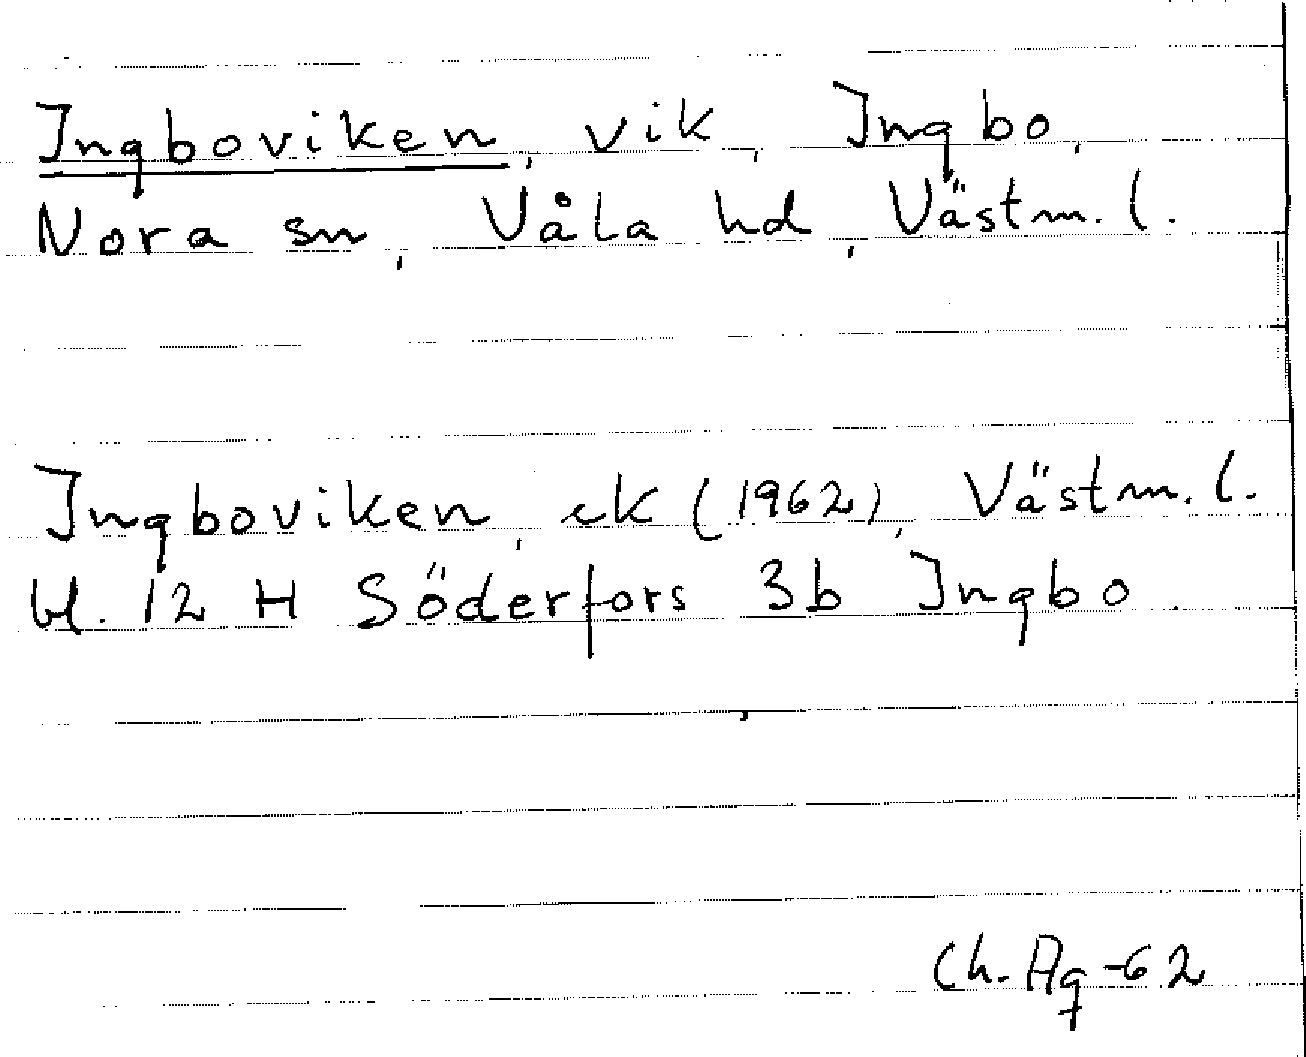 Ingboviken, vik, Ingbo,
Nora sn, Våla hd, Västm. l.
Ingboviken, ek (1962), Västm. l.
bl. 12 H Söderfors 3b Ingbo.
Ch. Ag -62